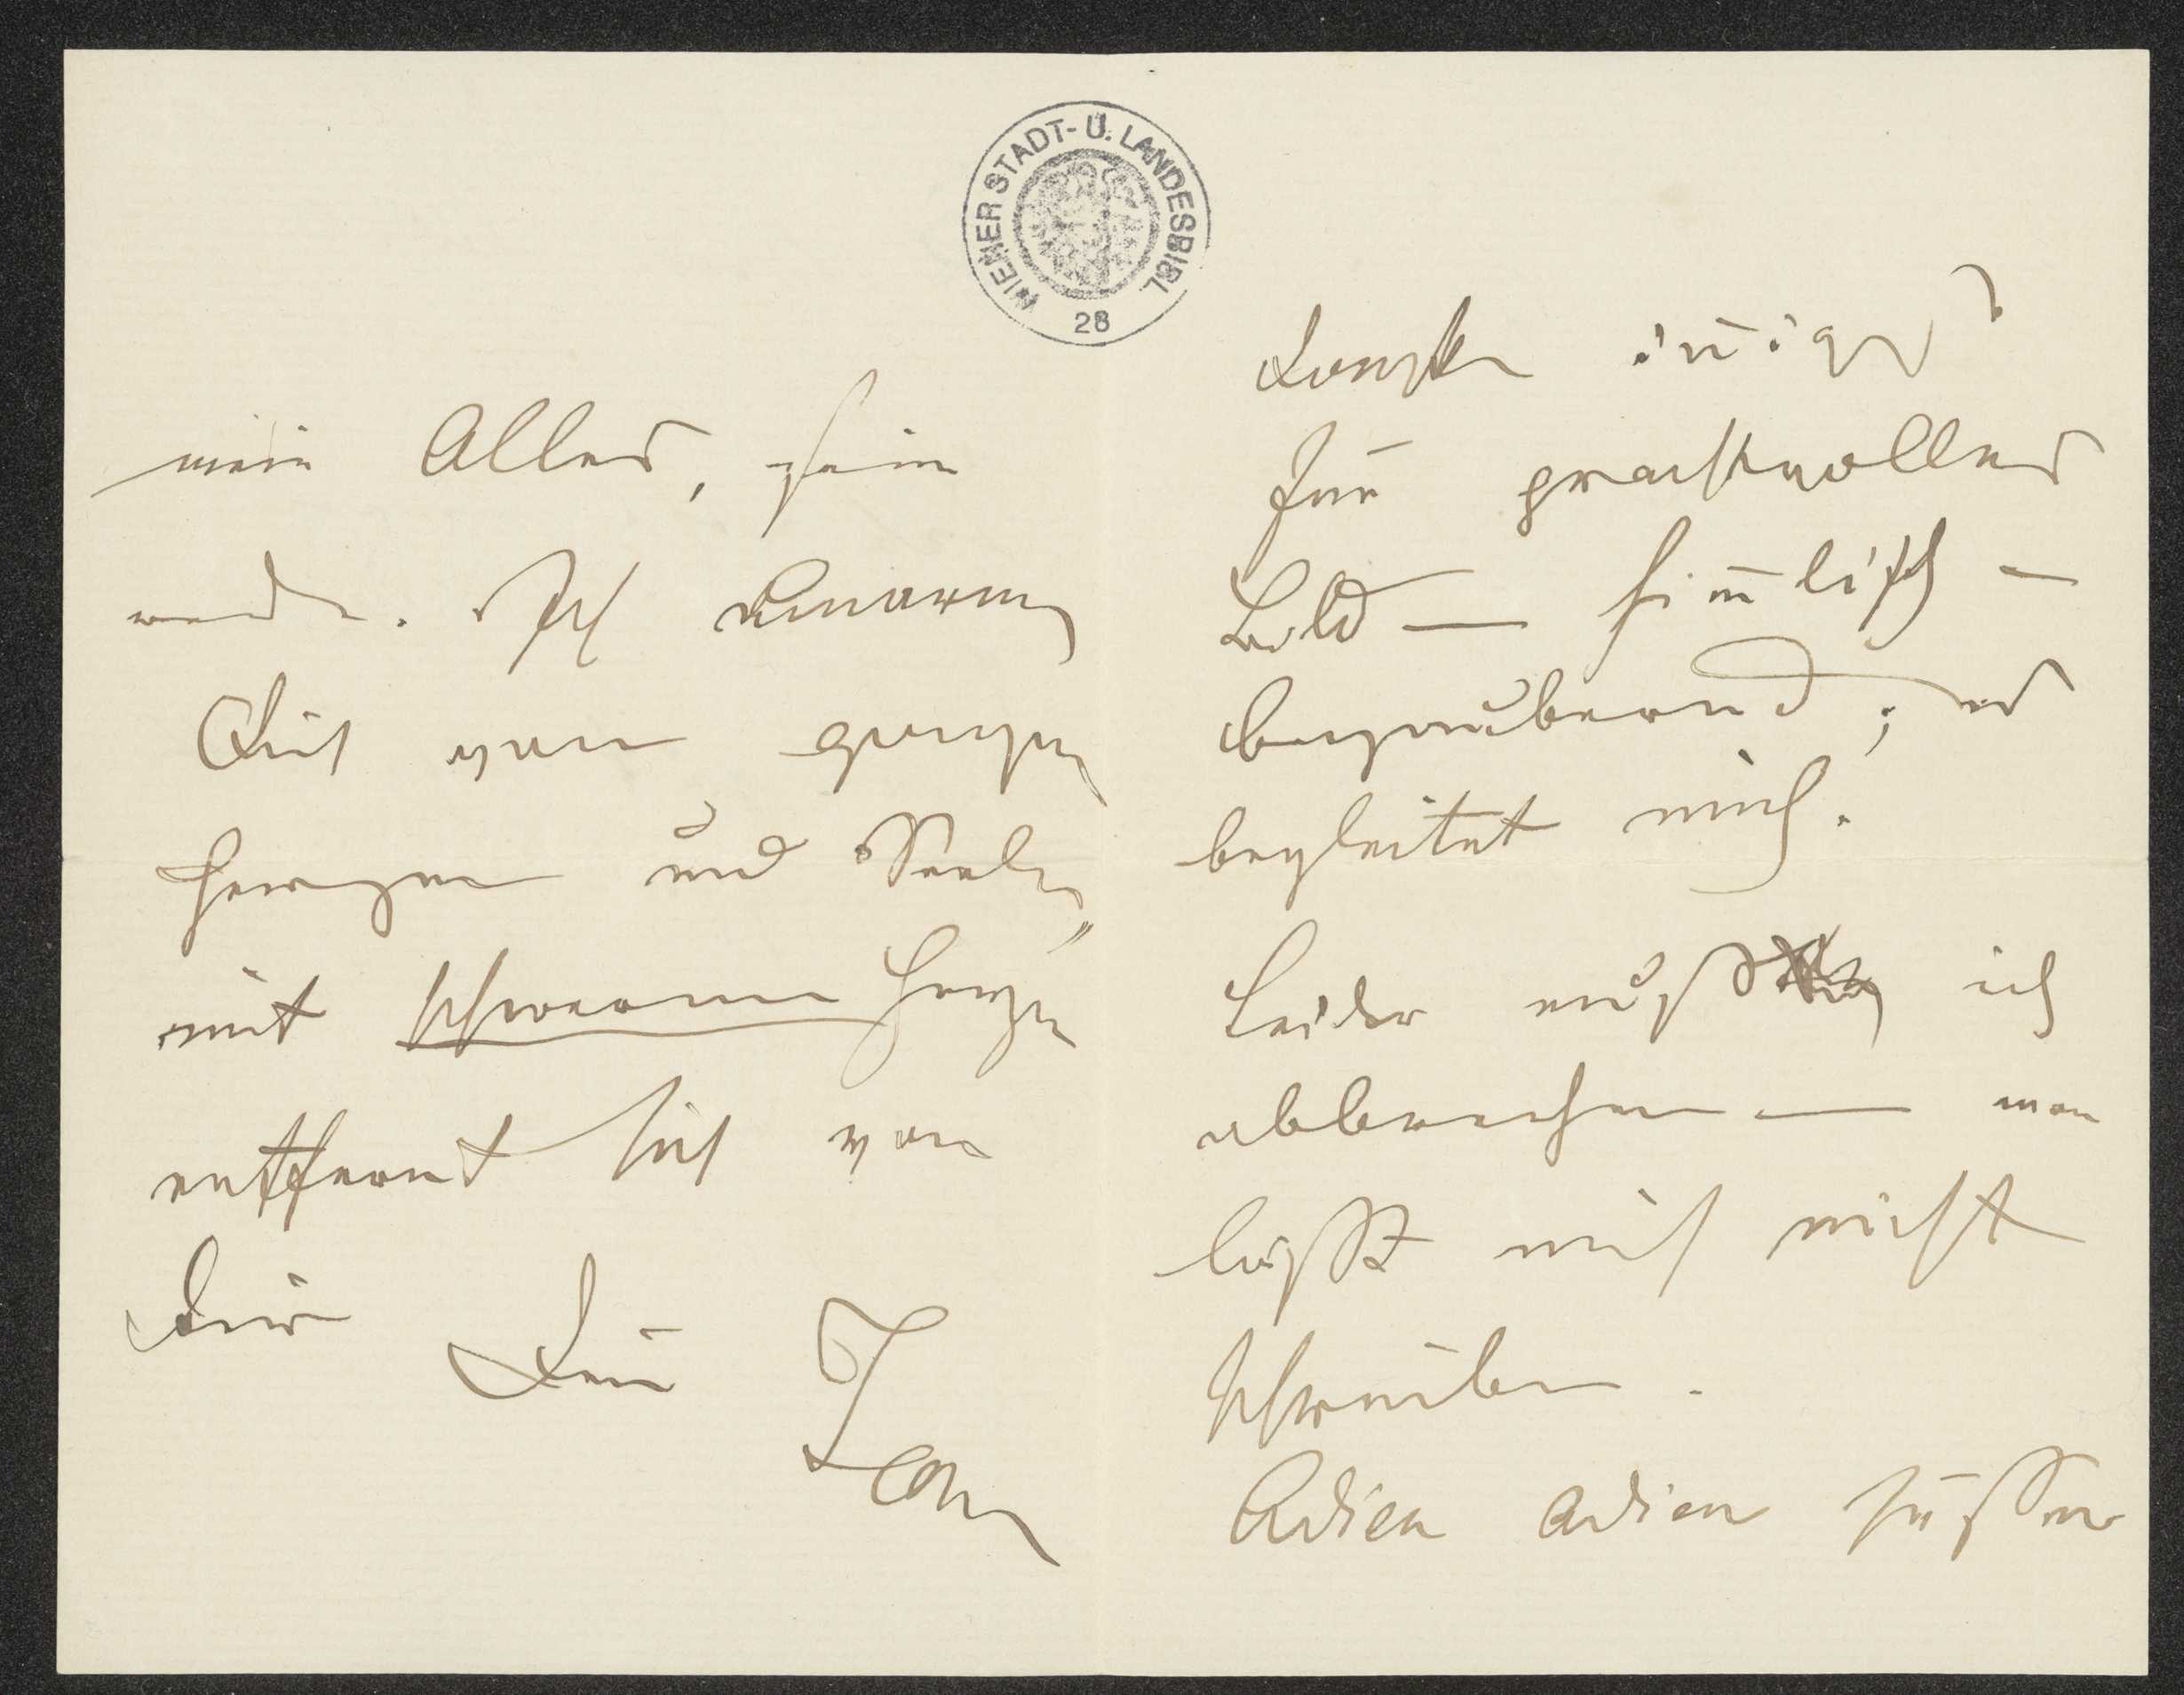 WIENER STADT- U. LANDESBIBL
28
mein Alles, sein
werde. Ich umarme
Dich von ganzen
Herzen und Seele,
mit schweren Herzen
entfernt sich von
Dir
Dein Jean
Danke
für prachtvolles
Bild — him̅lisch —
bezaubernd; es
begleitet mich.
Leider muß ich
abbrechen — man
läßt mich nicht
schreiben.
Adieu adieu süßer